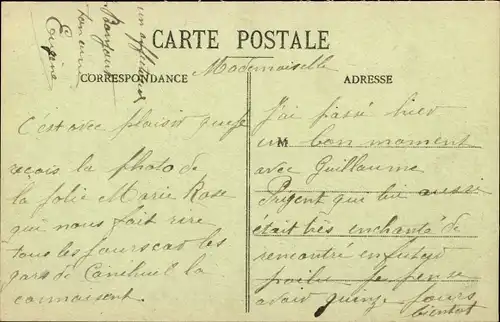 un affectueux
Bonjour
ton ami
Eugène
CARTE POSTALE
CORRESPONDANCE
ADRESSE
Mademoiselle
C'est avec plaisir que je
reçois la photo de
la jolie Marie Rose
qui nous fait rire
tous les jours car les
gars de Canihuel la
connaissent.
J'ai passé hier
M
un bon moment
avec Guillaume
Prigent qui lui aussi
était très enchanté de
rencontré un futur
poilu Je pense
avoir quinze jours
bientôt